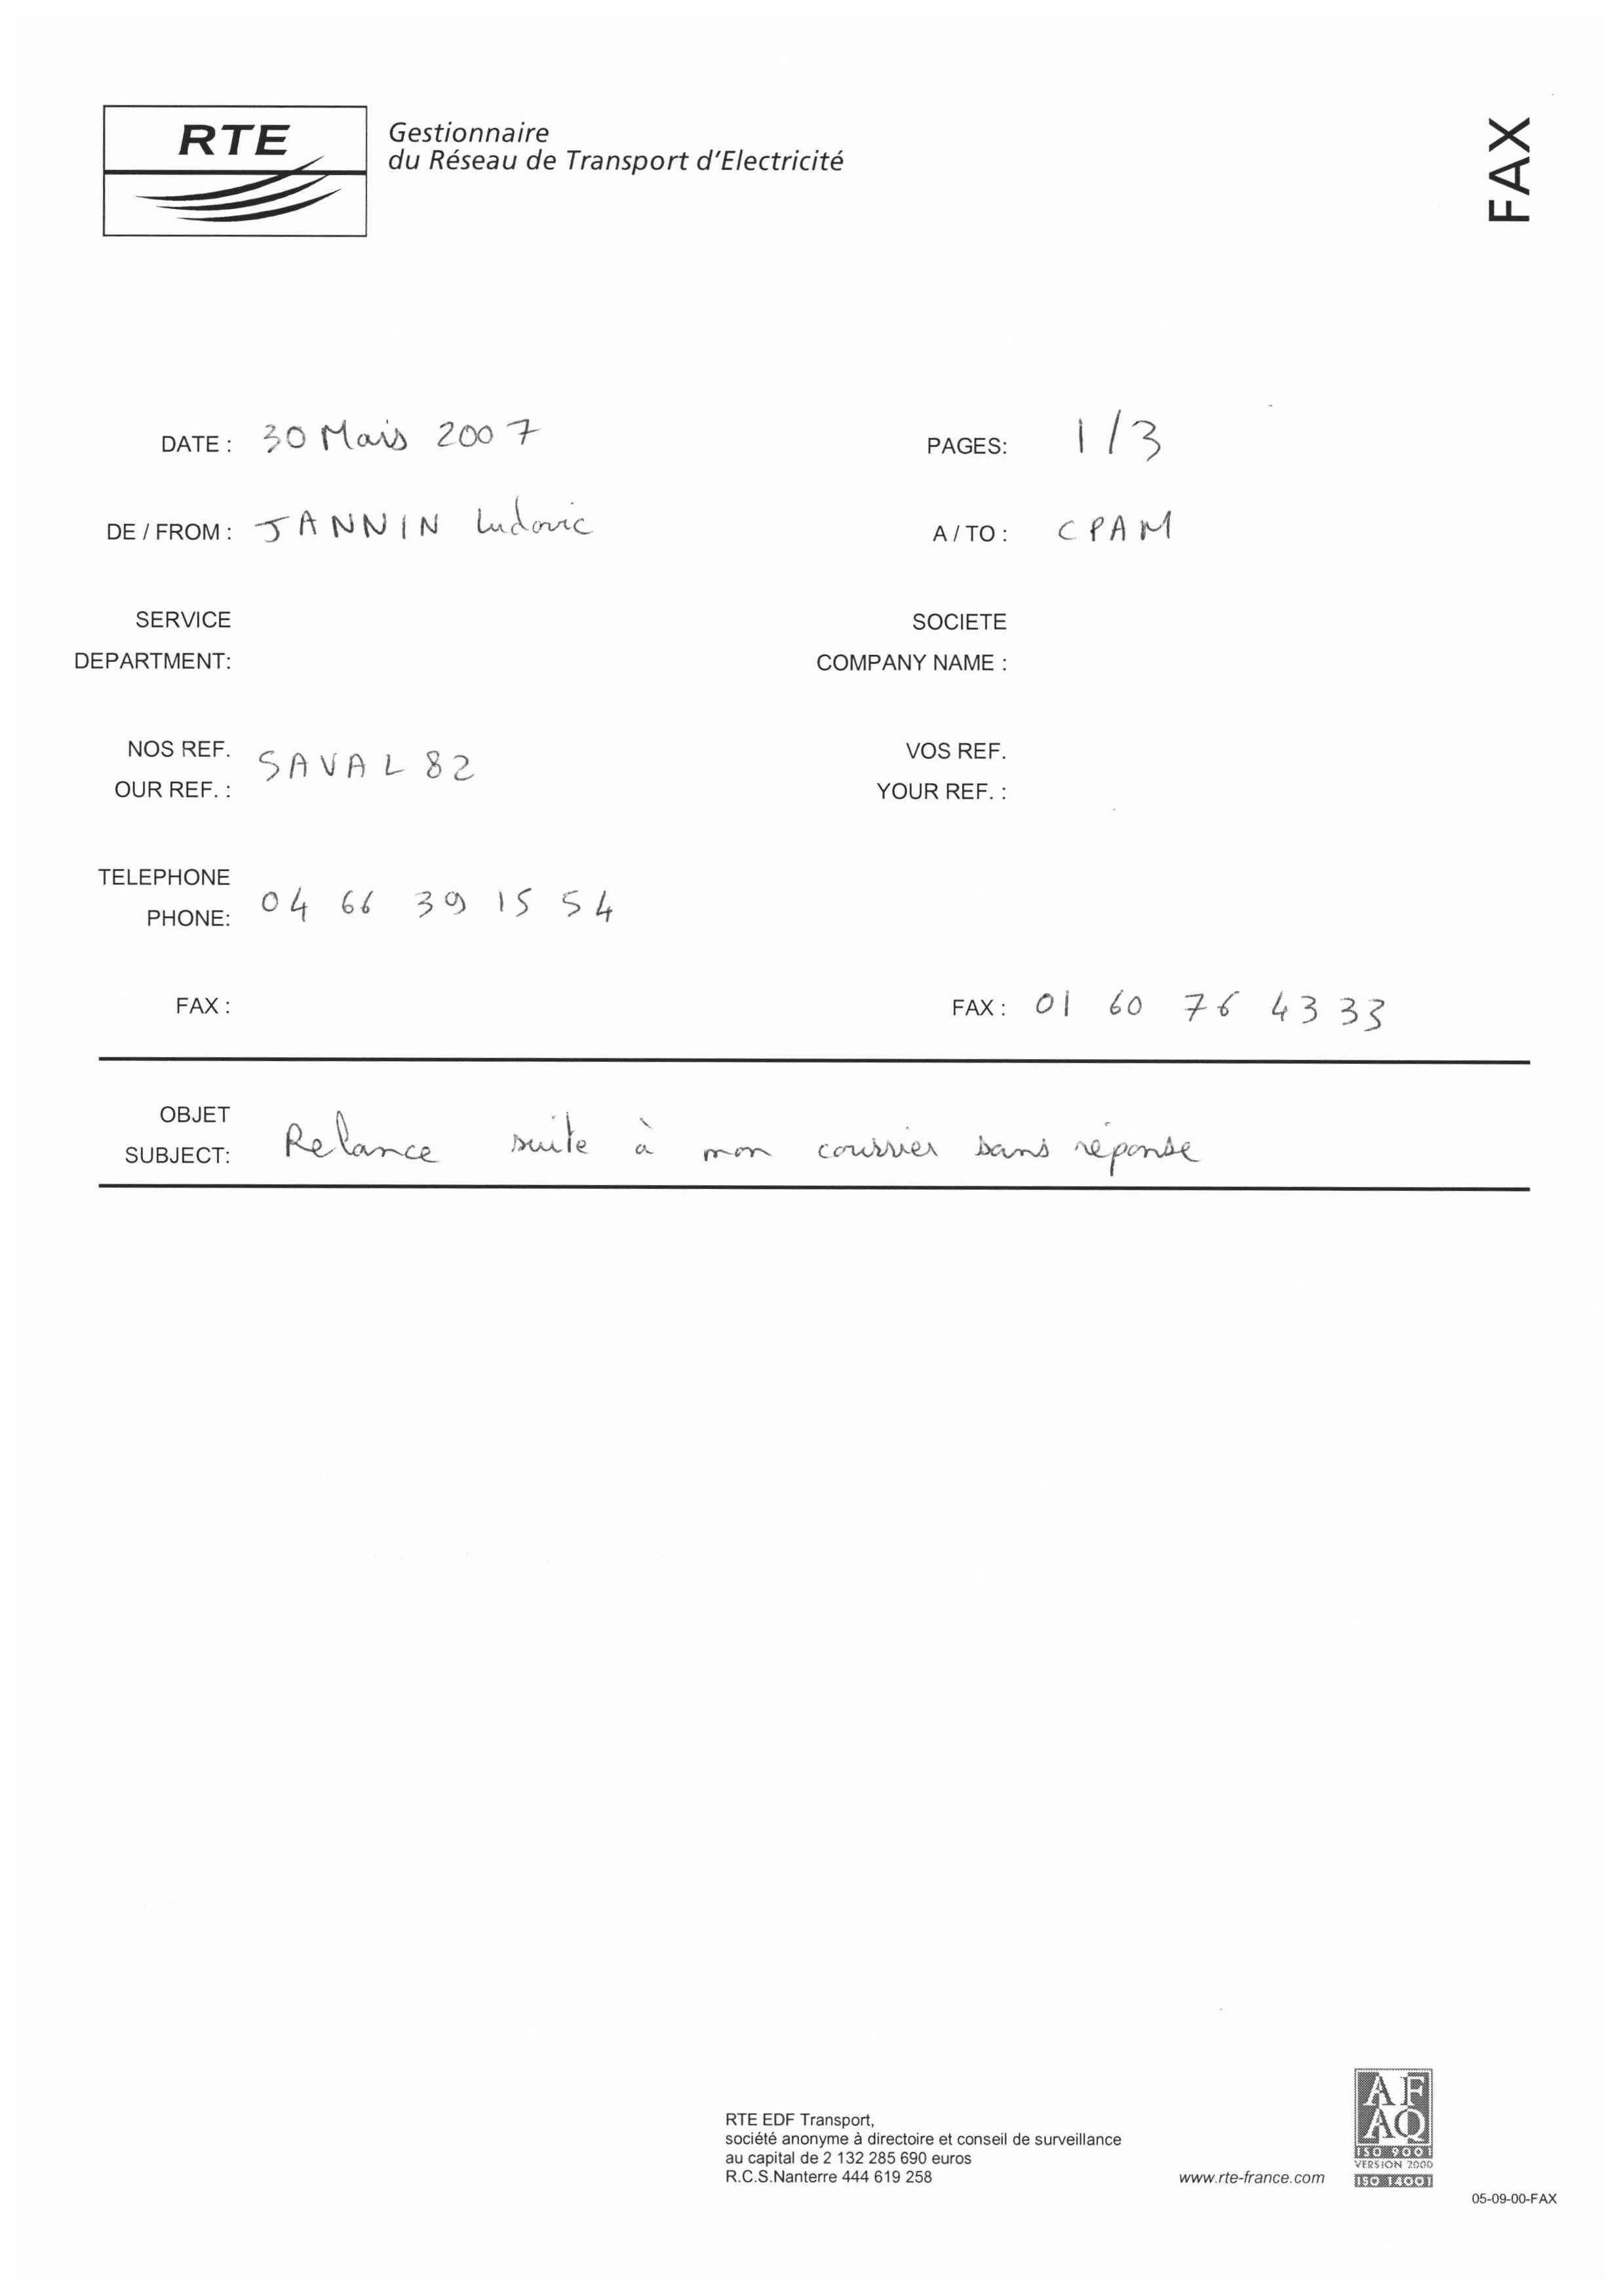 RTE
Gestionnaire
du Réseau de Transport d'Electricité
FAX
DATE : 30 Mais 2007
PAGES: 1/3
DE / FROM : JANNIN Ludovic
A / TO : CPAM
SERVICE
DEPARTMENT:
SOCIETE
COMPANY NAME :
NOS REF.
OUR REF. : SAVAL 82
VOS REF.
YOUR REF. :
TELEPHONE
PHONE: 04 66 39 15 54
FAX :
FAX : 01 60 76 43 33
OBJET
SUBJECT: Relance suite à mon courrier sans réponse
RTE EDF Transport,
société anonyme à directoire et conseil de surveillance
au capital de 2 132 285 690 euros
R.C.S.Nanterre 444 619 258
www.rte-france.com
AF
AQ
ISO 9001
VERSION 2000
ISO 14001
05-09-00-FAX